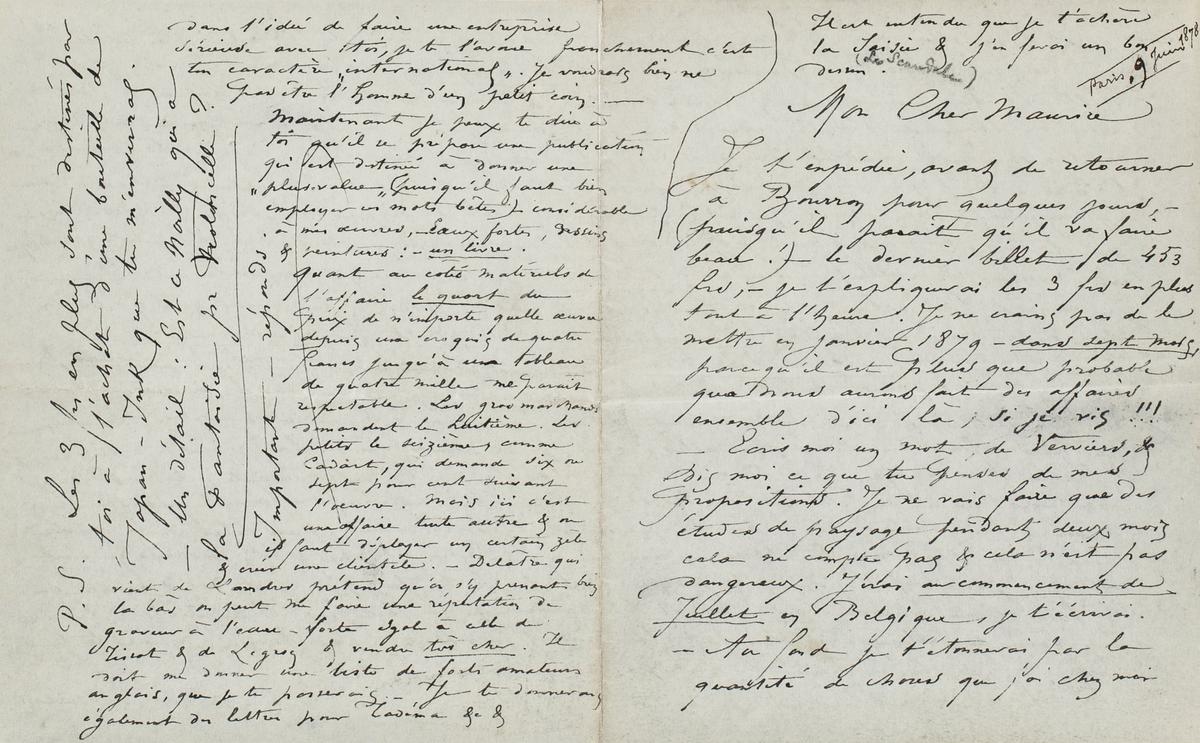 Il est entendu que je t'achève
la Saisie & j'en ferai un bon
dessin. (Le Scandale)
Paris, 9 Juin 1878
Mon Cher Maurice
Je t'expédie, avant de retourner
à Bourron pour quelques jours, –
(puisqu'il parait qu'il va faire
beau !) – le dernier billet, de 453
frs, – je t'expliquerai les 3 frs en plus
tout à l'heure. Je ne crains pas de le
mettre en janvier 1879 – dans sept mois,
parcequ'il est plus que probable
que nous aurons fait des affaires
ensemble d'ici là, si je vis !!!
– Ecris moi un mot, de Verviers, &
Dis moi ce que tu penses de mes
propositions. Je ne vais faire que des
études de paysage pendant deux mois
cela ne compte pas & cela n'est pas
dangereux. J'irai au commencement de
Juillet en Belgique, je t'écrirai.
– Au fond je t'étonnerai par la
quantité de choses que j'ai chez moi
dans l'idée de faire une entreprise
sérieuse avec toi, je te l'avoue franchement c'est
ton caractère „international„. Je voudrais bien ne
pas être l'homme d'un petit coin. —
Maintenant je peux te dire à
toi qu'il se prépare une publication
qui est destinée à donner une
„plus-value„ (puisqu'il faut bien
employer ces mots bêtes) considérable
à mes œuvres, – Eaux fortes, dessins
& peintures : – un livre.
quant au coté matériels de
l'affaire le quart du
prix de n'importe quelle œuvre
depuis un croquis de quatre
francs jusqu'à un tableau
de quatre mille me parait
respectable. Les gros marchands
demandent le huitième. Les
petits le seizième, comme
Cadart, qui demande six ou
sept pour cent suivant
l'œuvre. Mais ici c'est
une affaire toute autre & où
il faut déployer un certain zèle
& créer une clientèle. – Delatre qui
vient de Londres prétend qu'en s'y prenant bien
la bas on peut me faire une réputation de
graveur à l'eau-forte égal à celle de
Tissot & de Legros & vendre très cher. Il
doit me donner une liste de forts amateurs
anglais, que je te passerais. – Je te donnerais
également des lettres pour Tadéma &c &
P.S. Les 3 frs en plus sont destinés par
toi à l'achat d'une bouteille de
Japan-Ink que tu m'enverras.
– Un détail : Est ce Mailly qui a
La Fantaisie pr Violoncelle ?
Important – réponds.